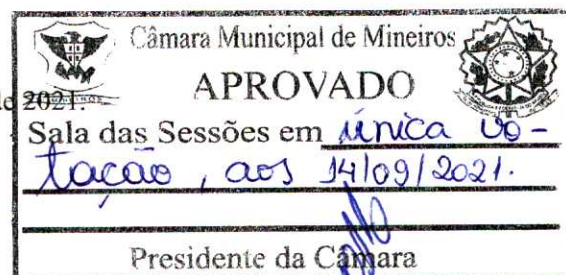 Câmara Municipal de Mineiros
APROVADO
de 2021.
Sala das Sessões em única vo-
tação, aos 14/09/2021.
Presidente da Câmara